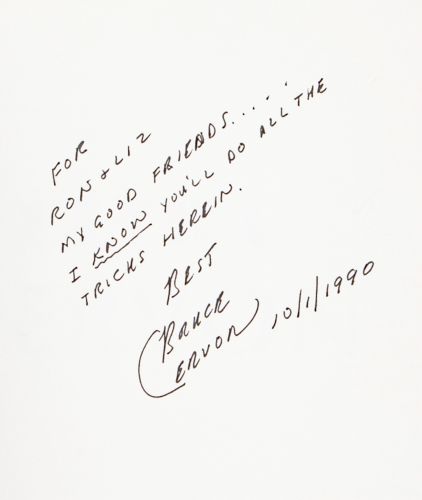 FOR
RON & LIZ
MY GOOD FRIENDS.....
I KNOW YOU'LL DO ALL THE
TRICKS HEREIN.
BEST
BRUCE
CERVON 10/1/1990